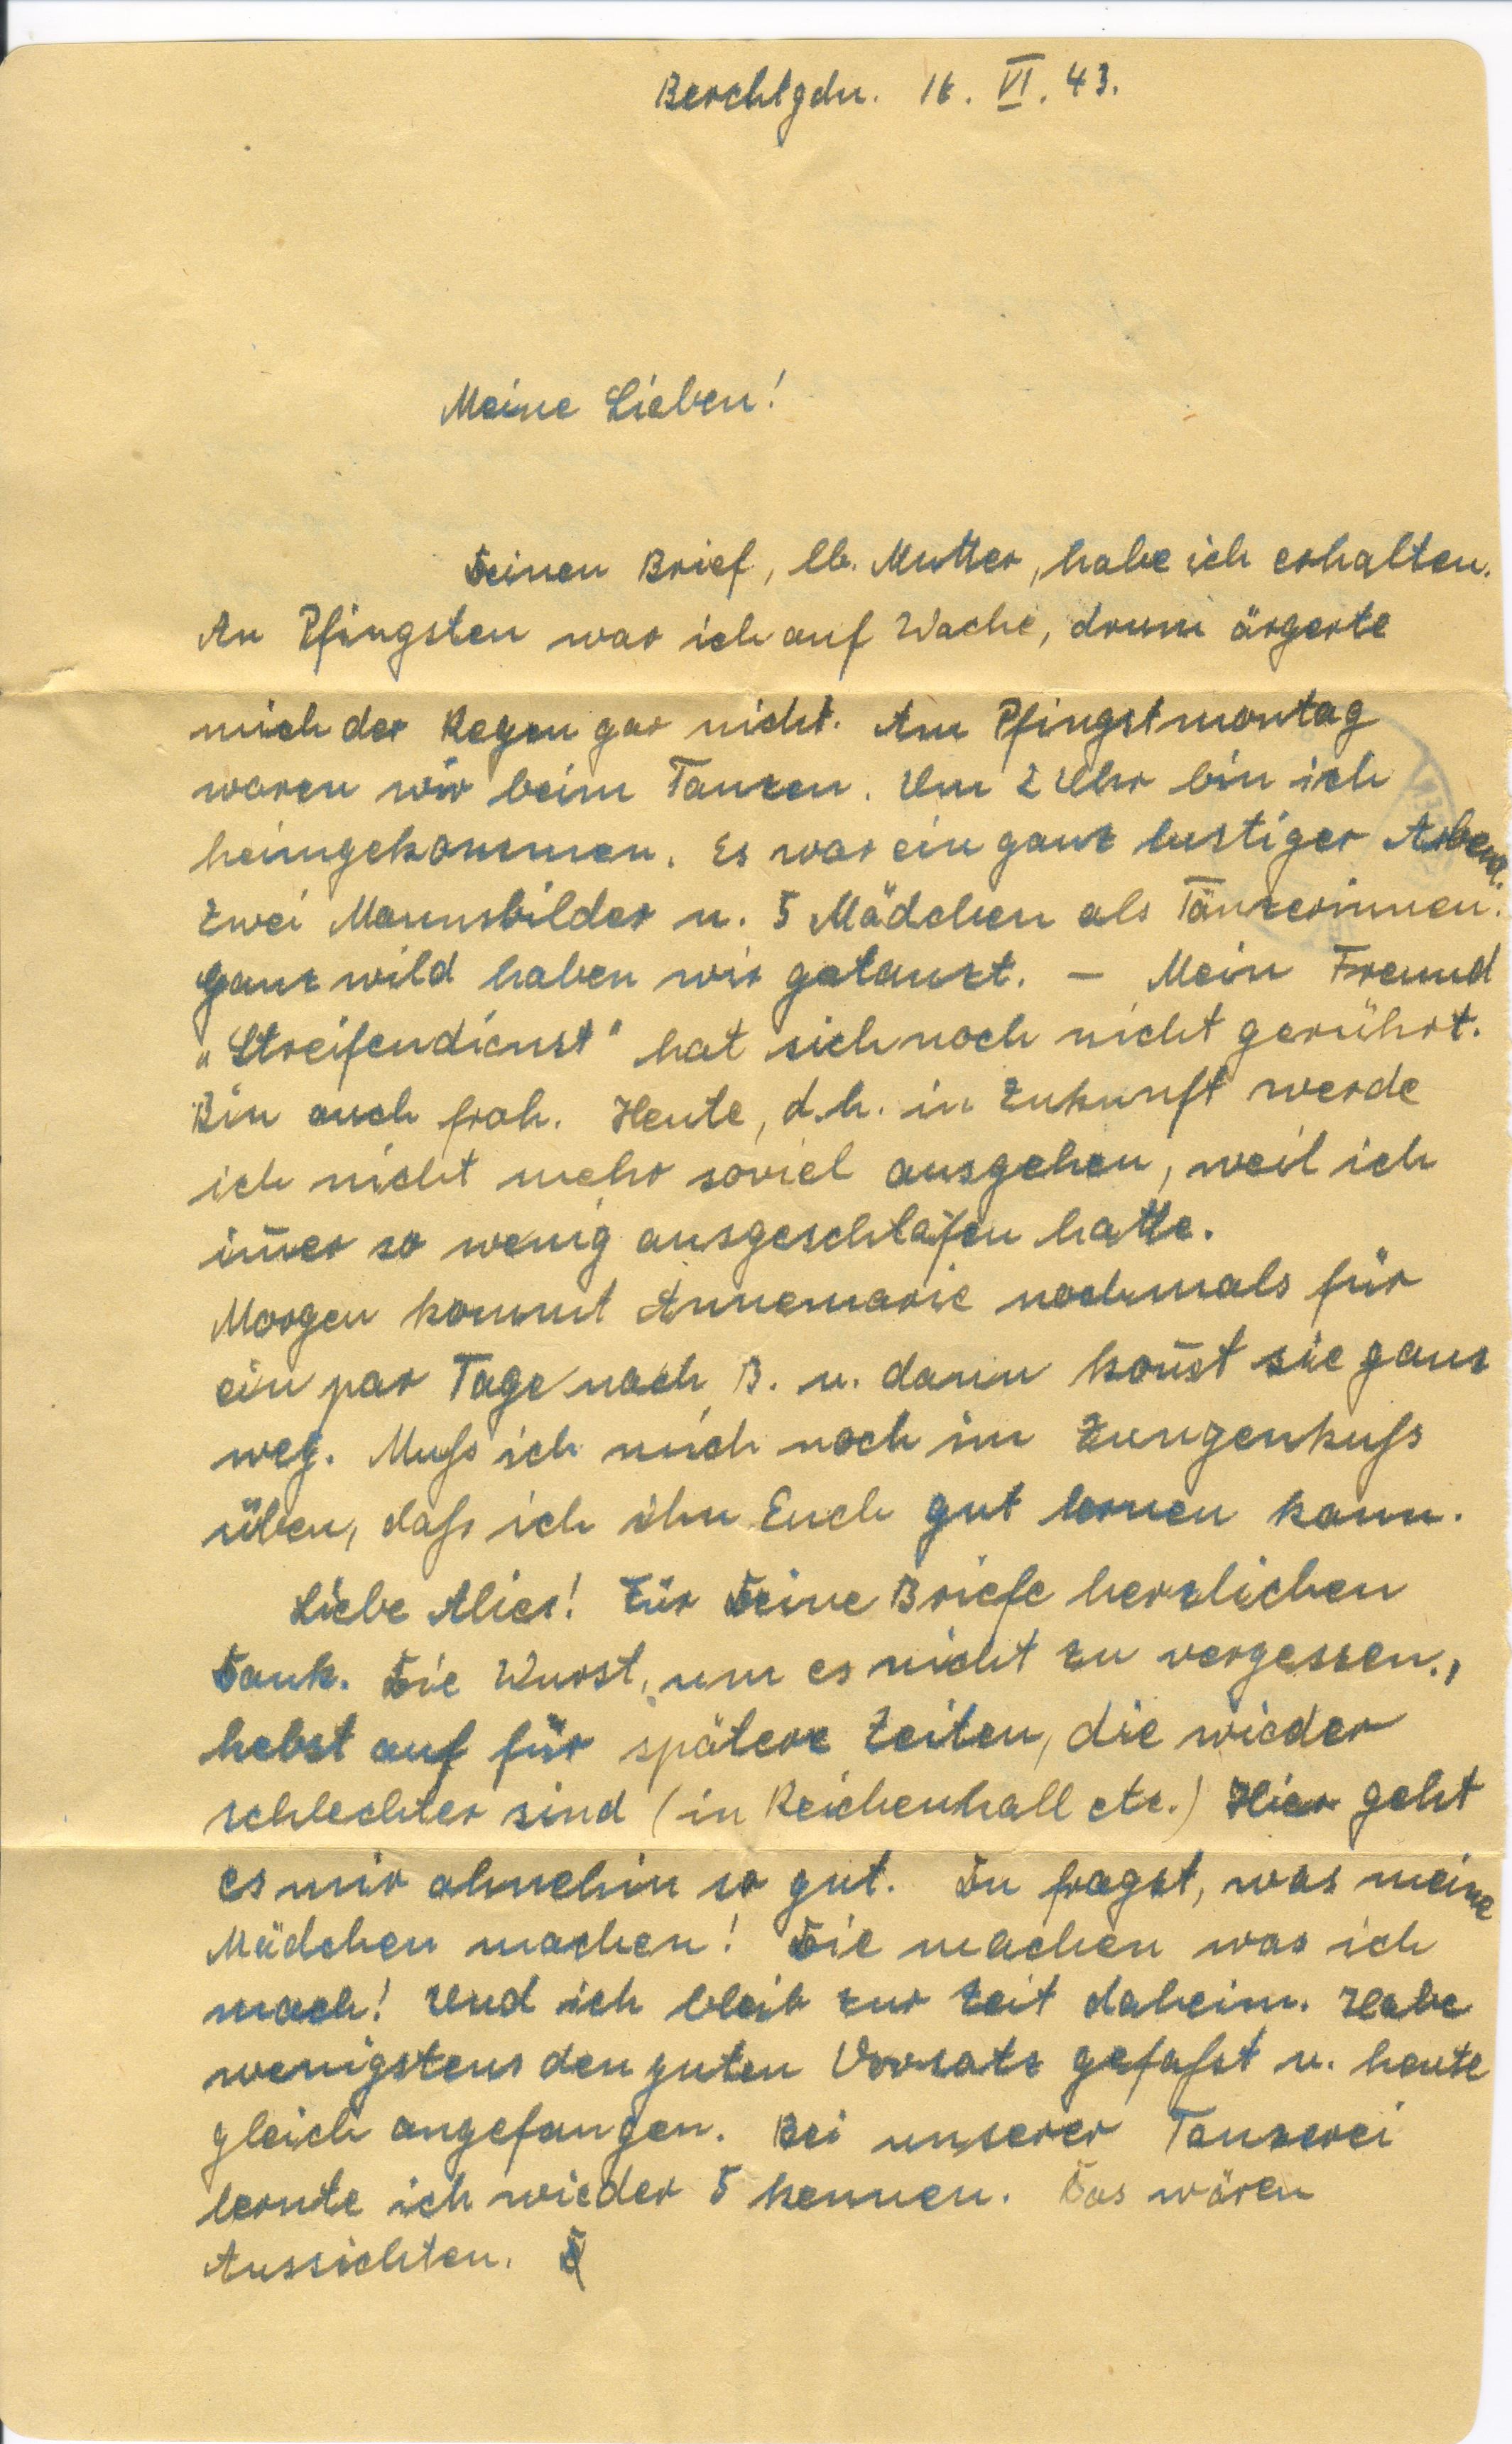 Berchtgdn. 16. VI. 43.
Meine Lieben!
Deinen Brief, lb. Mutter, habe ich erhalten.
An Pfingsten war ich auf Wache, drum ärgerte
mich der Regen gar nicht. Am Pfingstmontag
waren wir beim Tanzen. Um 2 Uhr bin ich
heimgekommen. Es war ein ganz lustiger Abend.
Zwei Mannsbilder u. 5 Mädchen als Tänzerinnen.
Ganz wild haben wir getanzt. — Mein Freund
„Streifendienst" hat sich noch nicht gerührt.
Bin auch froh. Heute, d.h. in Zukunft werde
ich nicht mehr soviel ausgehen, weil ich
im̅er so wenig ausgeschlafen hatte.
Morgen kommt Annemarie nochmals für
ein par Tage nach B. u. dann kom̅t sie ganz
weg. Muß ich mich noch im Zungenkuß
üben, daß ich ihn Euch gut lernen kann.
Liebe Alies! Für Deine Briefe herzlichen
Dank. Die Wurst, um es nicht zu vergessen,
hebst auf für spätere Zeiten, die wieder
schlechter sind (in Reichenhall etc.) Hier geht
es mir ohnehin so gut. Du fragst, was meine
Mädchen machen! Die machen was ich
mach! Und ich bleib zur Zeit daheim. Habe
wenigstens den guten Vorsatz gefaßt u. heute
gleich angefangen. Bei unserer Tanzerei
lernte ich wieder 5 kennen. Das wären
Aussichten.